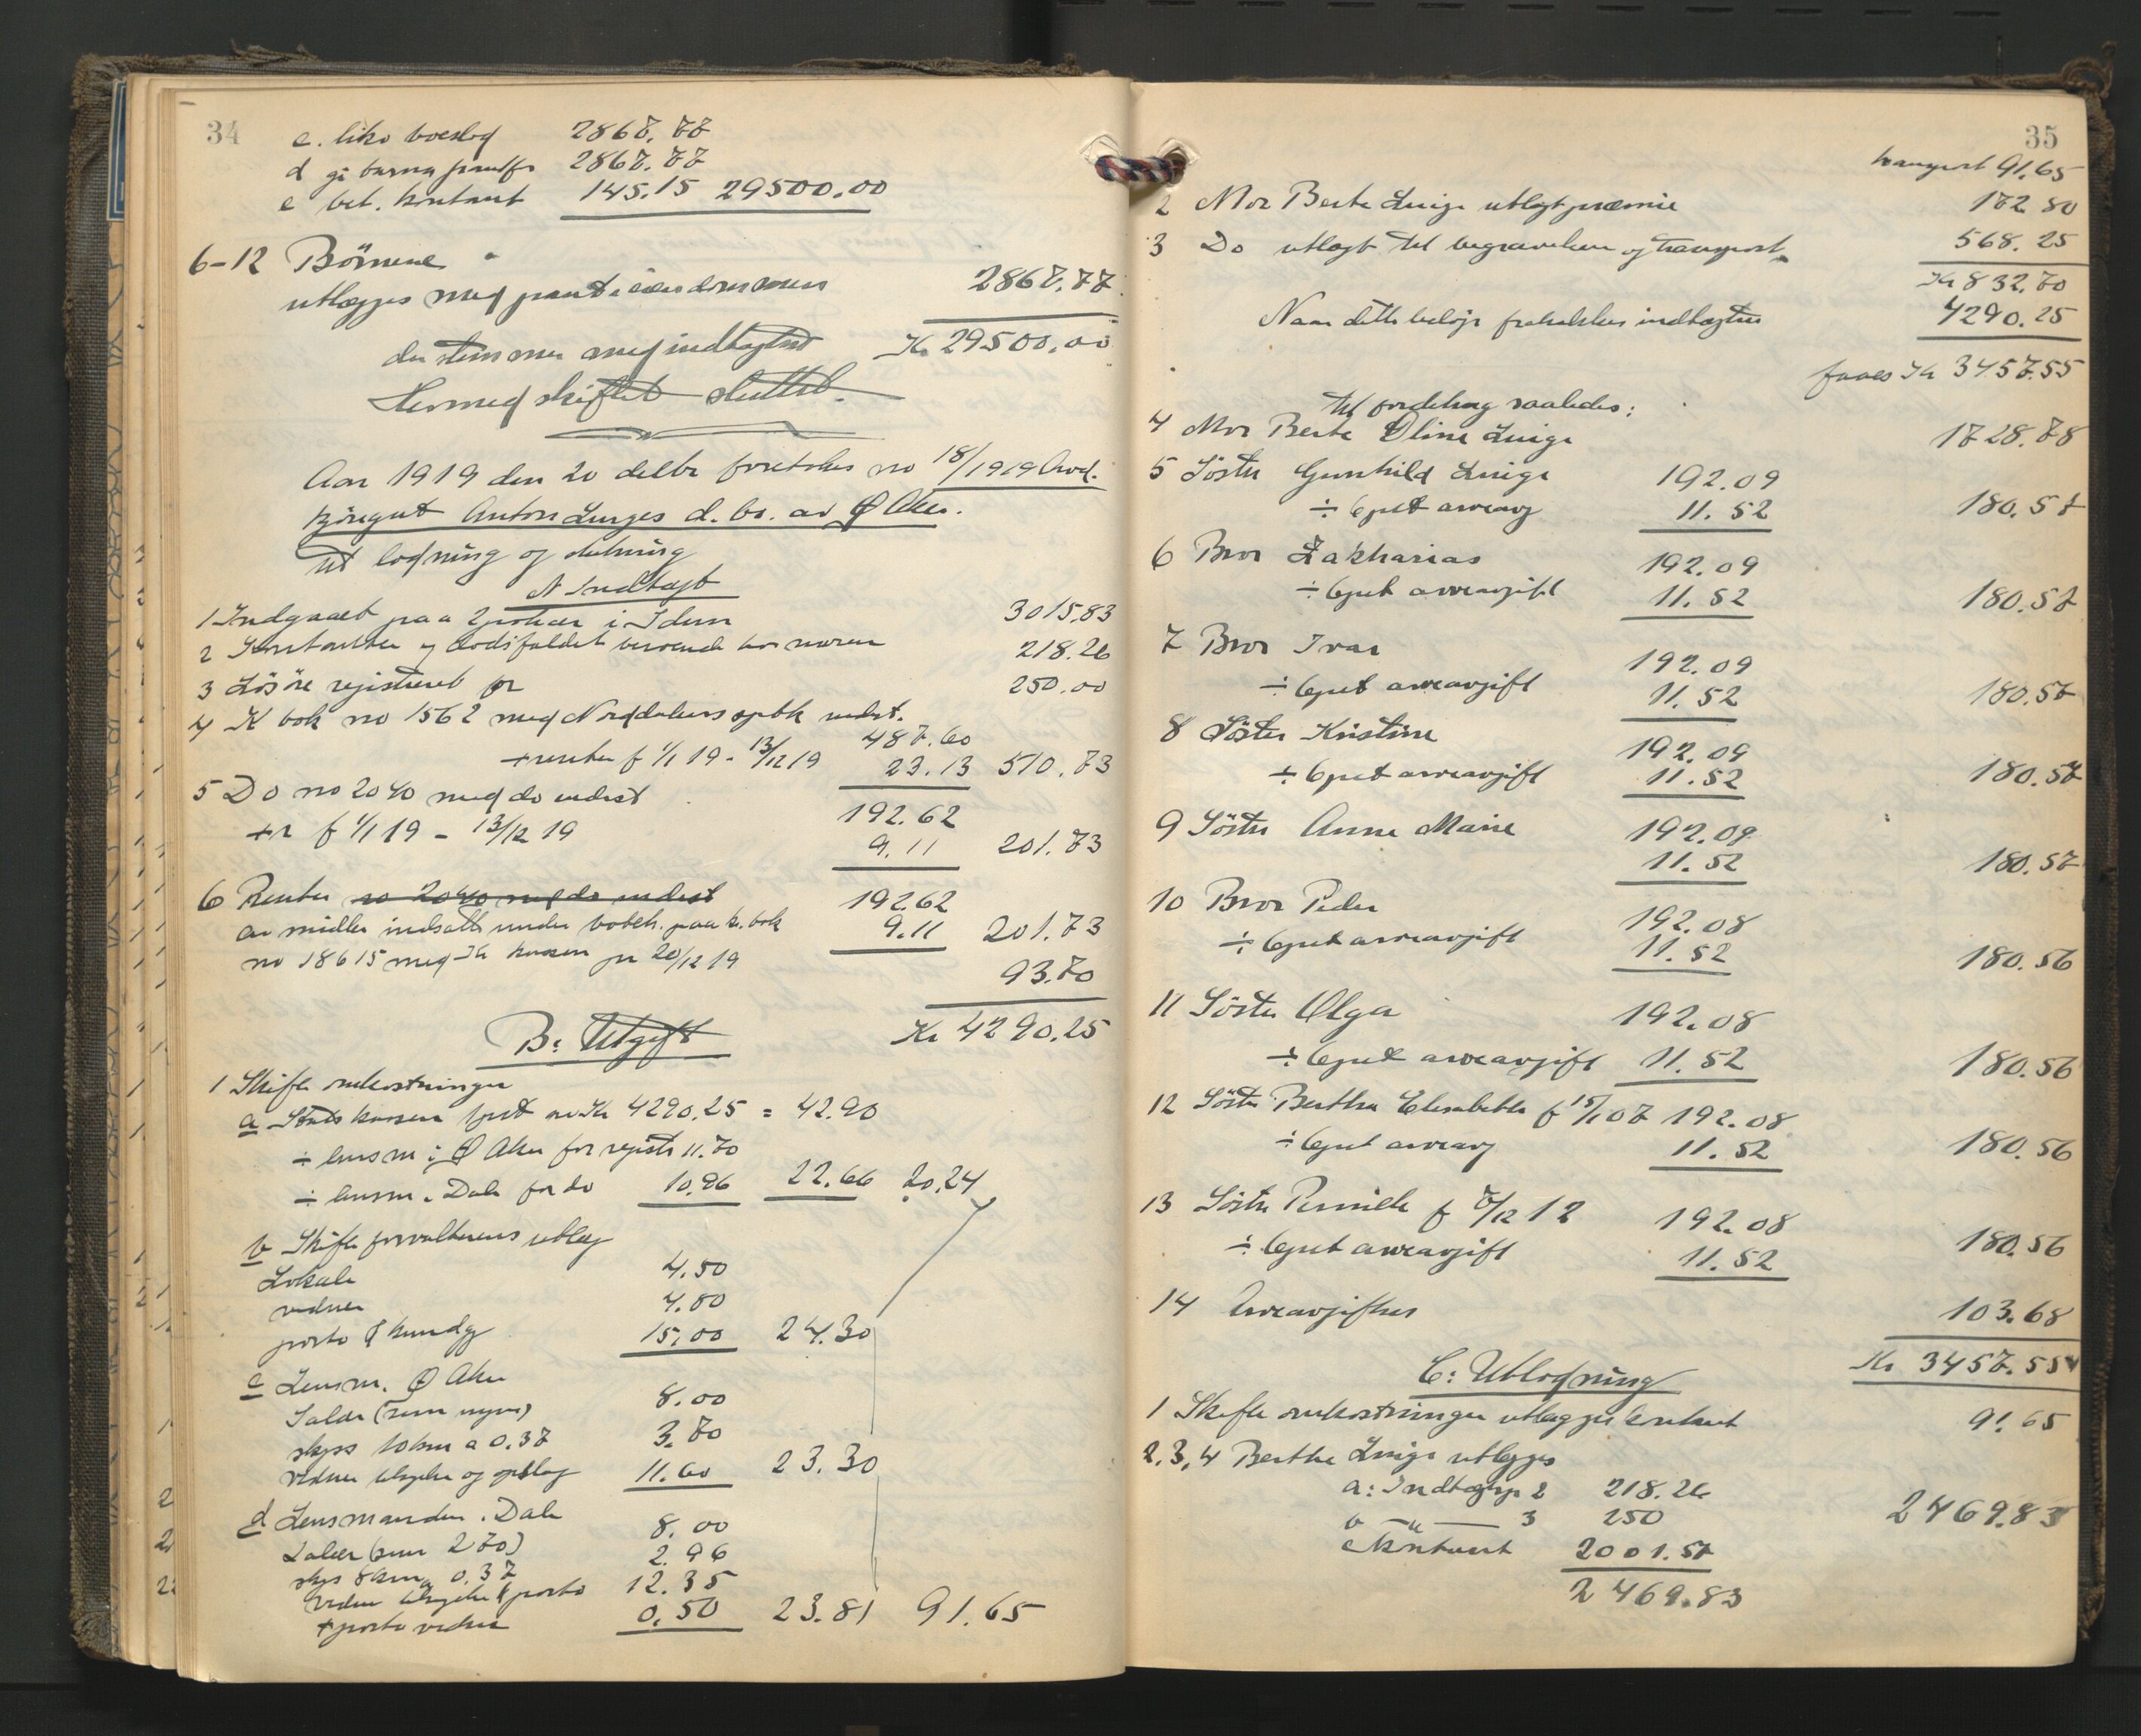 34
c. like boeslod 2867.77
d gi barna pantfr 2867.77
e bet. kontant 145.15 29500.00
6-12 Börnene
utlægges med pant i eiendommen 2867.77
der stemmer med indtægtene Kr 29500.00
Hermed skiftet sluttet.
Aar 1919 den 20 debr foretokes no 18/1919 Avd.
Anton Linges d. bo. av Ø Aker.
til lodning og slutning
A Indtægt
1 Indgaaet paa 3015.83
2 Kontanter ved dödsfaldet beroende hos moren 218.26
3 Lösöre registreret for 250.00
4 K bok no 1562 med Norddalens spbk indst. 487.60
+ renter f 1/1 19 - 13/12 19 23.13 510.73
5 Do no 2040 med do indest 192.62
+ r f 1/1 19 - 13/12 19 9.11 201.73
6 Renter no 2040 med do indest 192.62
av midler indsatt under bobeh. paa k. bok 9.11 201.73
no 18615 med Kr kassen pr 20/12 19 93.70
Kr 4290.25
B: Utgift
1 Skifte omkostninger
a Statskassen 1 pct av Kr 4290.25 = 42.90
÷ lensm i Ø Aker for registr 11.70
÷ lensm. Dale for do 10.96 22.66 20.24
b Skifteforvalterens utlæg
Lokale 4.50
vidner 4.80
porto & kundg 15.00 24.30
c Lensm. Ø Aker
Salær 8.00
skyss 10 km a 0.37 3.70
vidner tilsigelse og oplag 11.60 23.30
d Lensmanden i Dale
Salær (sum 270) 8.00
skys 8 km a 0.37 2.96
vidner tilsigelse & porto 12.35
+ porto vidner 0.50 23.81 91.65
35
transport 91.65
2 Mor Berte Linge utlagt præmie 172.80
3 Do utlagt til begravelsen og transport 568.25
Kr 832.70
Naar dette belöp fratrækkes indtægten 4290.25
faaes Kr 3457.55
til fordeling saaledes:
4 Mor Berte Oline Linge 1728.78
5 Söster Gunhild Linge 192.09
÷ 6 pct arveavg 11.52 180.57
6 Bror Zakharias 192.09
÷ 6 pct arveavgift 11.52 180.57
7 Bror Ivar 192.09
÷ 6 pct arveavgift 11.52 180.57
8 Söster Kristine 192.09
÷ 6 pct arveavgift 11.52 180.57
9 Söster Anne Marie 192.09
11.52 180.57
10 Bror Peder 192.08
÷ 6 pct arveavgift 11.52 180.56
11 Söster Olga 192.08
÷ 6 pct arveavgift 11.52 180.56
12 Söster Bertha Elisabeth f 15/1 07 192.08
÷ 6 pct arveavg 11.52 180.56
13 Söster Pernille f 7/12 12 192.08
÷ 6 pct arveavgift 11.52 180.56
14 Arveavgiften 103.68
Kr 3457.55
C: Utlodning
1 Skifte omkostninger utlægges kontant 91.65
2, 3, 4 Berthe Linge utlegges
a: Indtægtsp 2 218.26
b - " - 3 250 2469.83
c Kontant 2001.57
2469.83